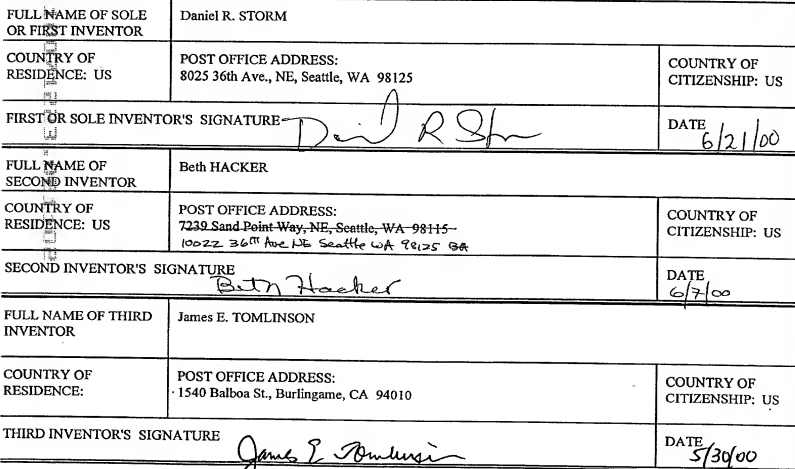 FULL NAME OF SOLE OR FIRST INVENTOR
Daniel R. STORM
COUNTRY OF RESIDENCE: US
POST OFFICE ADDRESS:
8025 36th Ave., NE, Seattle, WA 98125
COUNTRY OF CITIZENSHIP: US
FIRST OR SOLE INVENTOR'S SIGNATURE Daniel R Storm
DATE 6/21/00
FULL NAME OF SECOND INVENTOR
Beth HACKER
COUNTRY OF RESIDENCE: US
POST OFFICE ADDRESS:
7239 Sand Point Way, NE, Seattle, WA 98115
10022 36TH Ave NE Seattle WA 98125
COUNTRY OF CITIZENSHIP: US
SECOND INVENTOR'S SIGNATURE Beth Hacker
DATE 6/7/00
FULL NAME OF THIRD INVENTOR
James E. TOMLINSON
COUNTRY OF RESIDENCE:
POST OFFICE ADDRESS:
1540 Balboa St., Burlingame, CA 94010
COUNTRY OF CITIZENSHIP: US
THIRD INVENTOR'S SIGNATURE James E Tomlinson
DATE 5/30/00